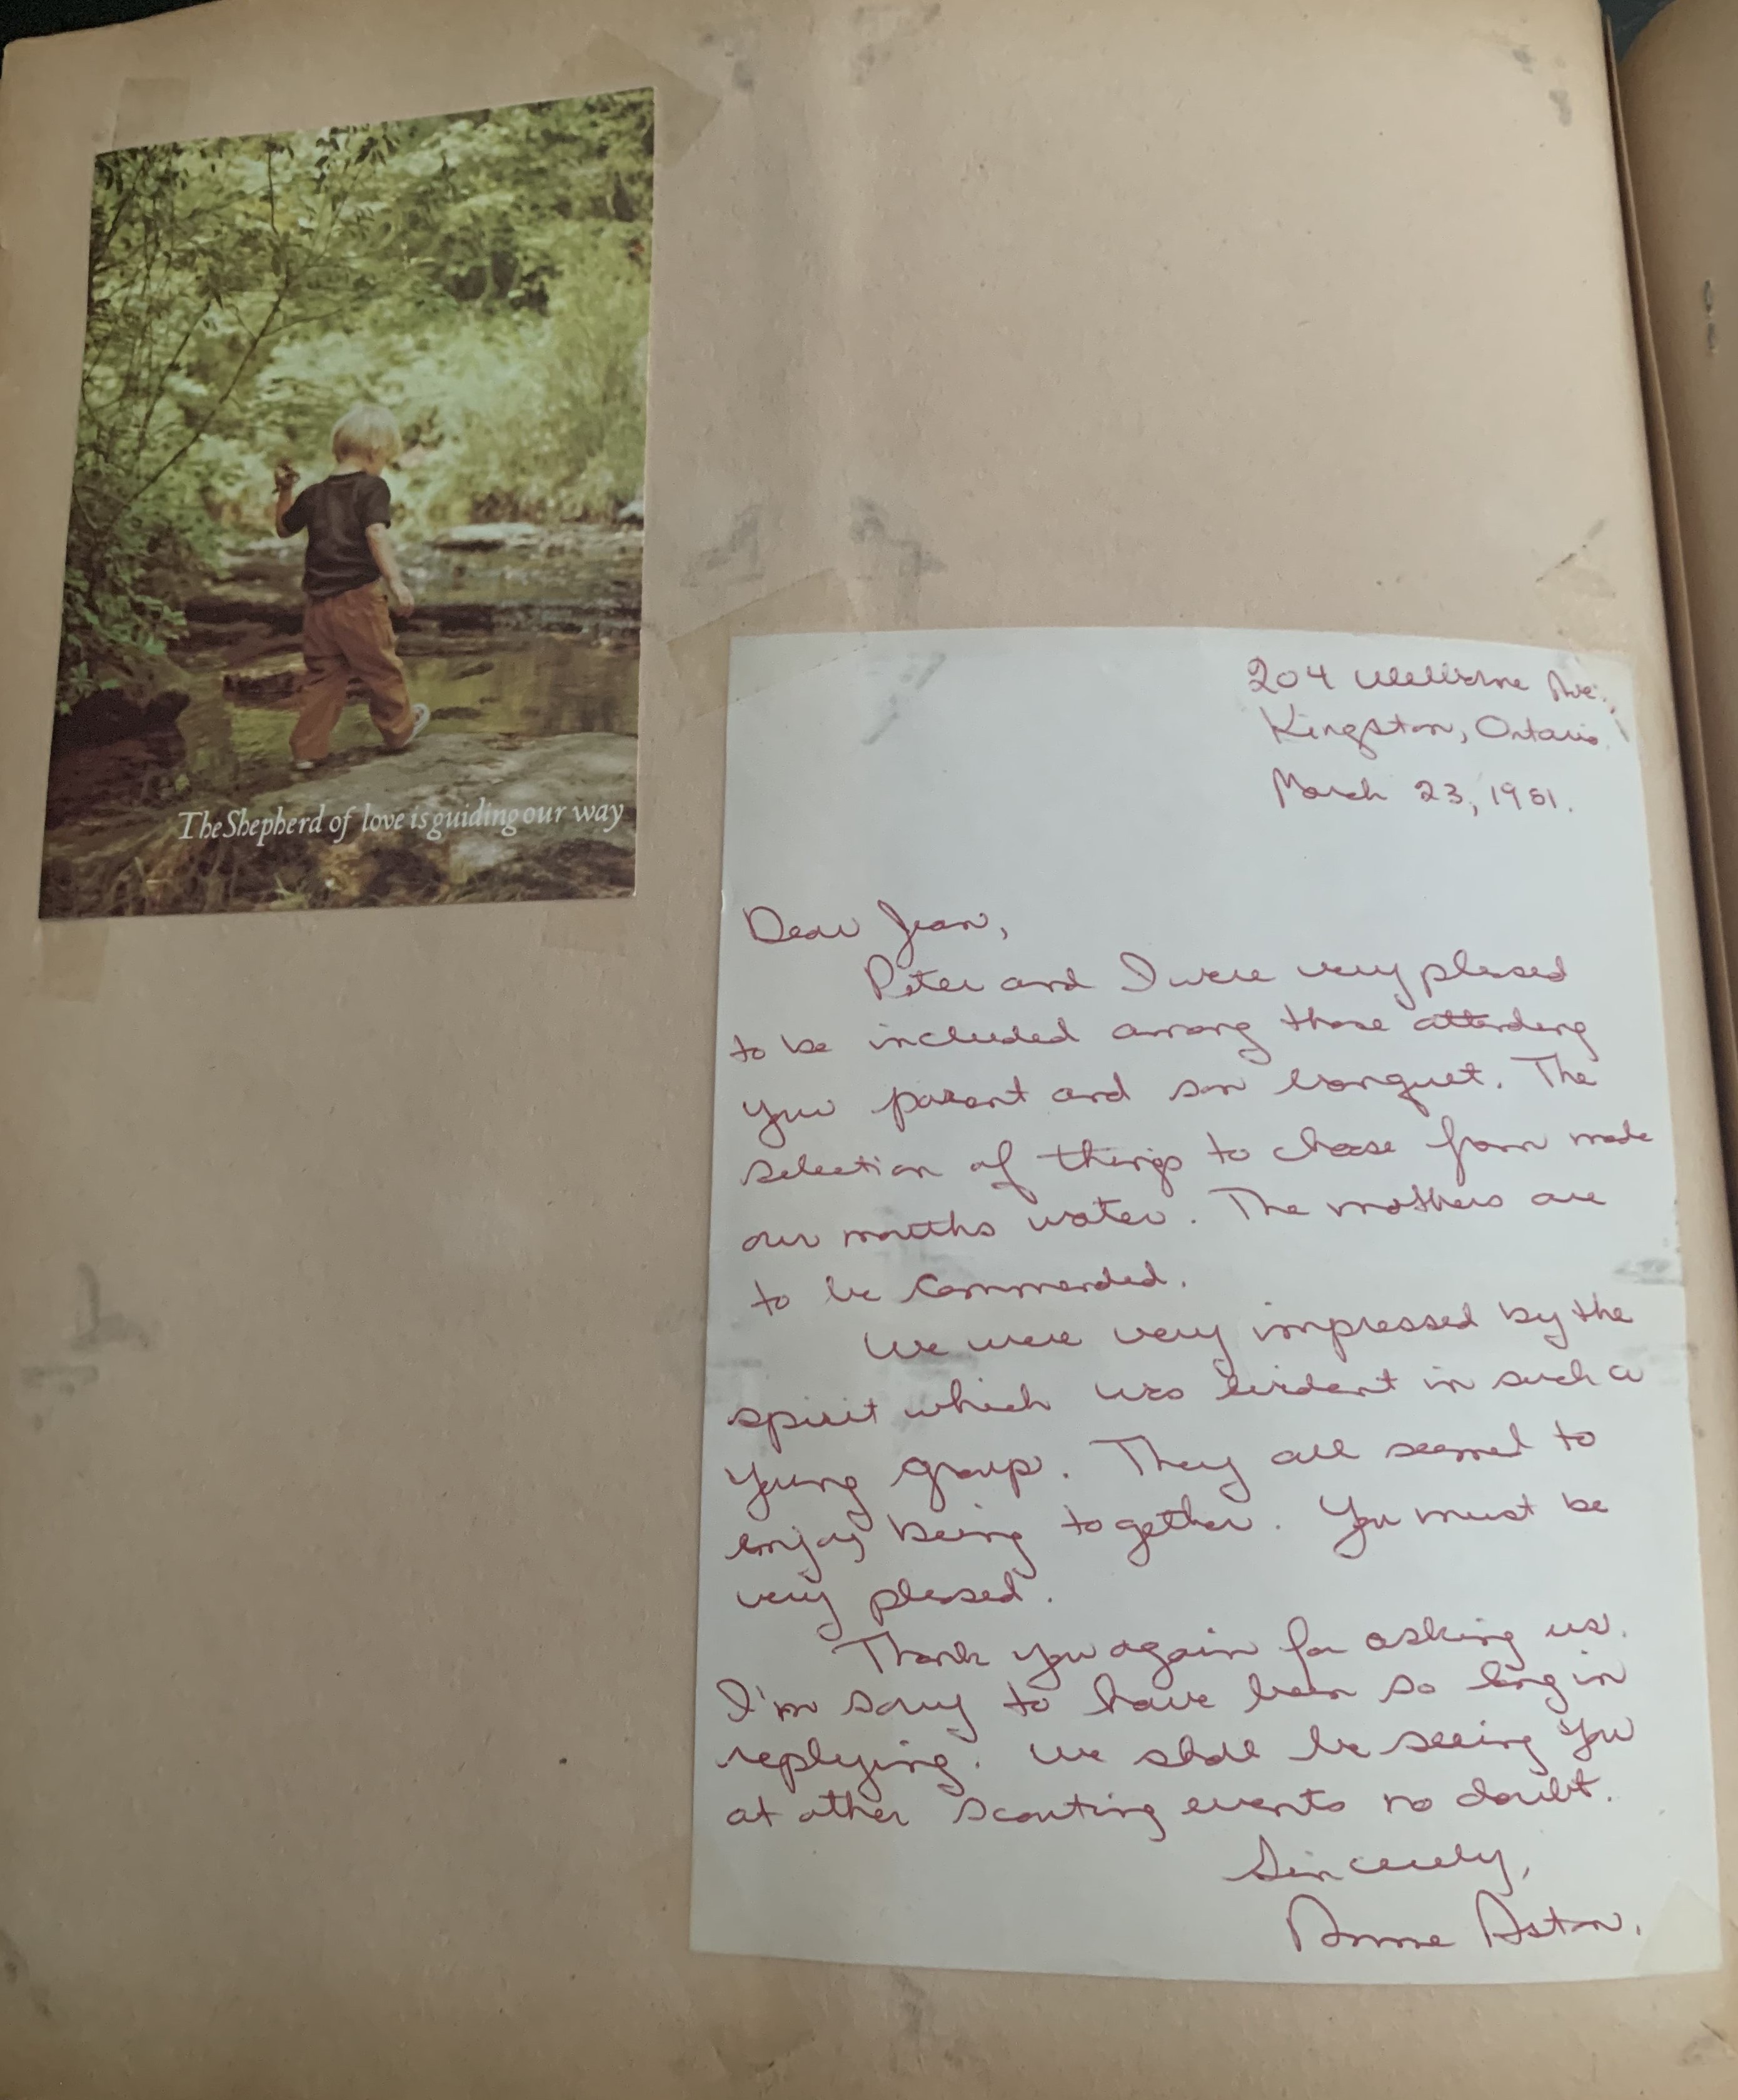 The Shepherd of love is guiding our way
204 Welborne Ave.,
Kingston, Ontario.
March 23, 1981.
Dear Jean,
Peter and I were very pleased
to be included among those attending
your parent and son banquet. The
selection of things to choose from made
our mouths water. The mothers are
to be commended.
We were very impressed by the
spirit which was evident in such a
young group. They all seemed to
enjoy being together. You must be
very pleased.
Thank you again for asking us.
I'm sorry to have been so long in
replying. We shall be seeing you
at other Scouting events no doubt.
Sincerely,
Anne Aston.